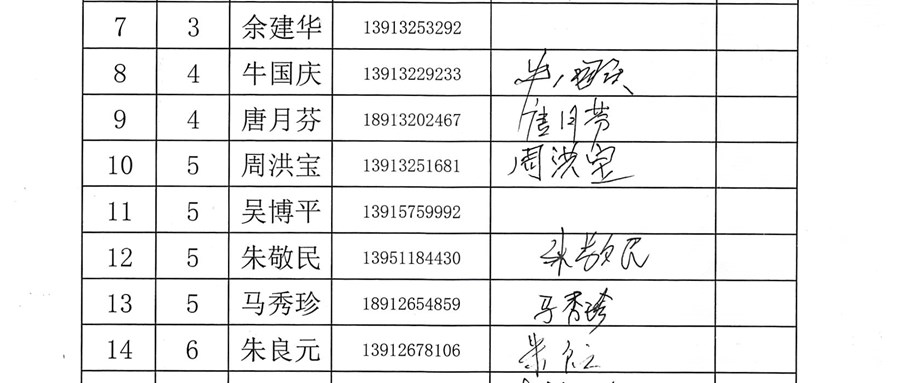 7 3 余建华 13913253292
8 4 牛国庆 13913229233 牛国庆
9 4 唐月芬 18913202467 唐月芬
10 5 周洪宝 13913251681 周洪宝
11 5 吴博平 13915759992
12 5 朱敬民 13951184430 朱敬民
13 5 马秀珍 18912654859 马秀珍
14 6 朱良元 13912678106 朱良元